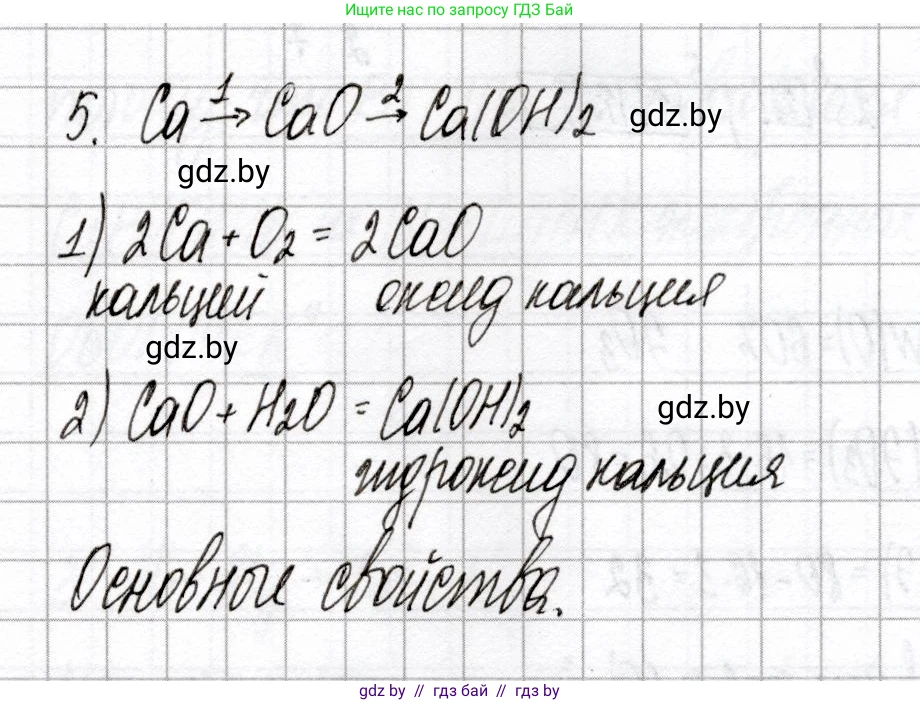 Ищите нас по запросу ГДЗ Бай
5. Ca →¹ CaO →² Ca(OH)₂ gdz.by
gdz.by
1) 2Ca + O₂ = 2CaO
кальций оксид кальция
gdz.by
2) CaO + H₂O = Ca(OH)₂ gdz.by
гидроксид кальция
Основные свойства.
gdz by // гдз бай // гдз by